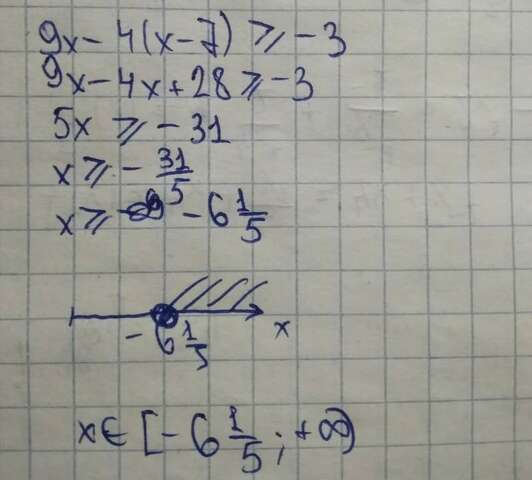 9x - 4(x - 7) ⩾ -3
9x - 4x + 28 ⩾ -3
5x ⩾ -31
x ⩾ - 31/5
x ⩾ - 6 1/5
- 6 1/5 x
x ∈ [- 6 1/5 ; +∞)